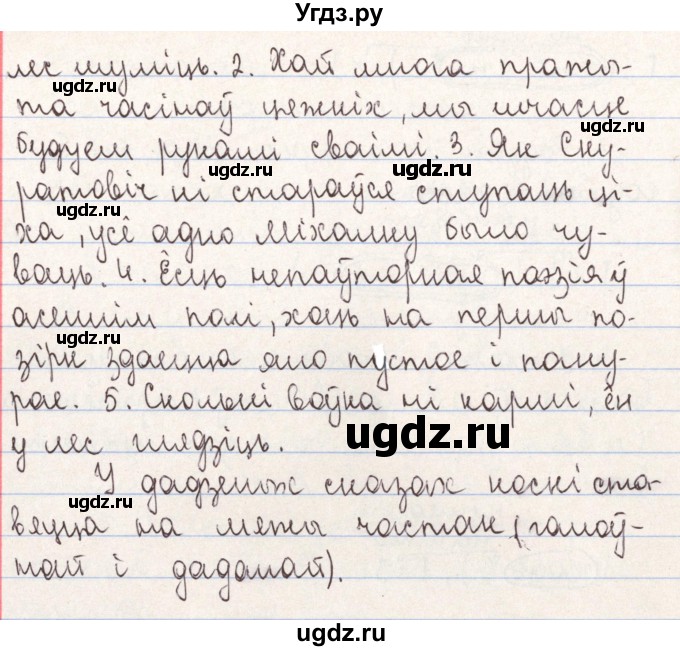 Угдз.ру
лес шуміць. 2. Хай многа пражы-
та часінаў цяжкіх, мы шчасце
будуем рукамі сваімі. 3. Як Ску-
ратовіч ні стараўся ступаць ці-
ха, усё адно Міхалку было чу-
ваць. 4. Ёсць непаўторная паэзія ў
асеннім полі, хаць на першы по-
зірк здаецца яно пустое і пану-
рае. 5. Сколькі воўка ні кармі, ён
у лес глядзіць.
У дадзеных сказах коскі ста-
вяцца на мяжы частак (галоў-
най і даданай).
ugdz.ru
ugdz.ru
ugdz.ru
ugdz.ru
ugdz.ru
ugdz.ru
ugdz.ru
ugdz.ru
ugdz.ru
ugdz.ru